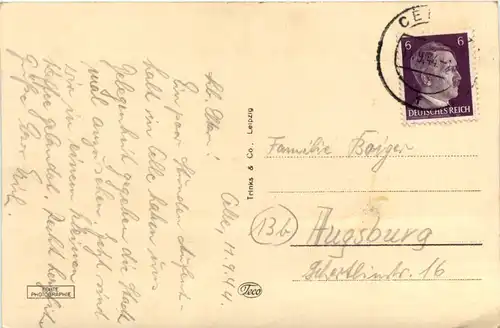 Celle, 11.9.44.
Lb. Eltern!
Ein paar Stunden Aufent-
halt in Celle haben uns
Gelegenheit gegeben die Stadt
mal anzusehen. Jetzt sind
wir in einem kleinen
gelandet. Recht herzliche
Grüße Euer
Trinks & Co., Leipzig
CE
6 6
DEUTSCHES REICH
Familie Baiger
13b
Augsburg
Schertlinstr. 16
ECHTE
PHOTOGRAPHIE
Teco